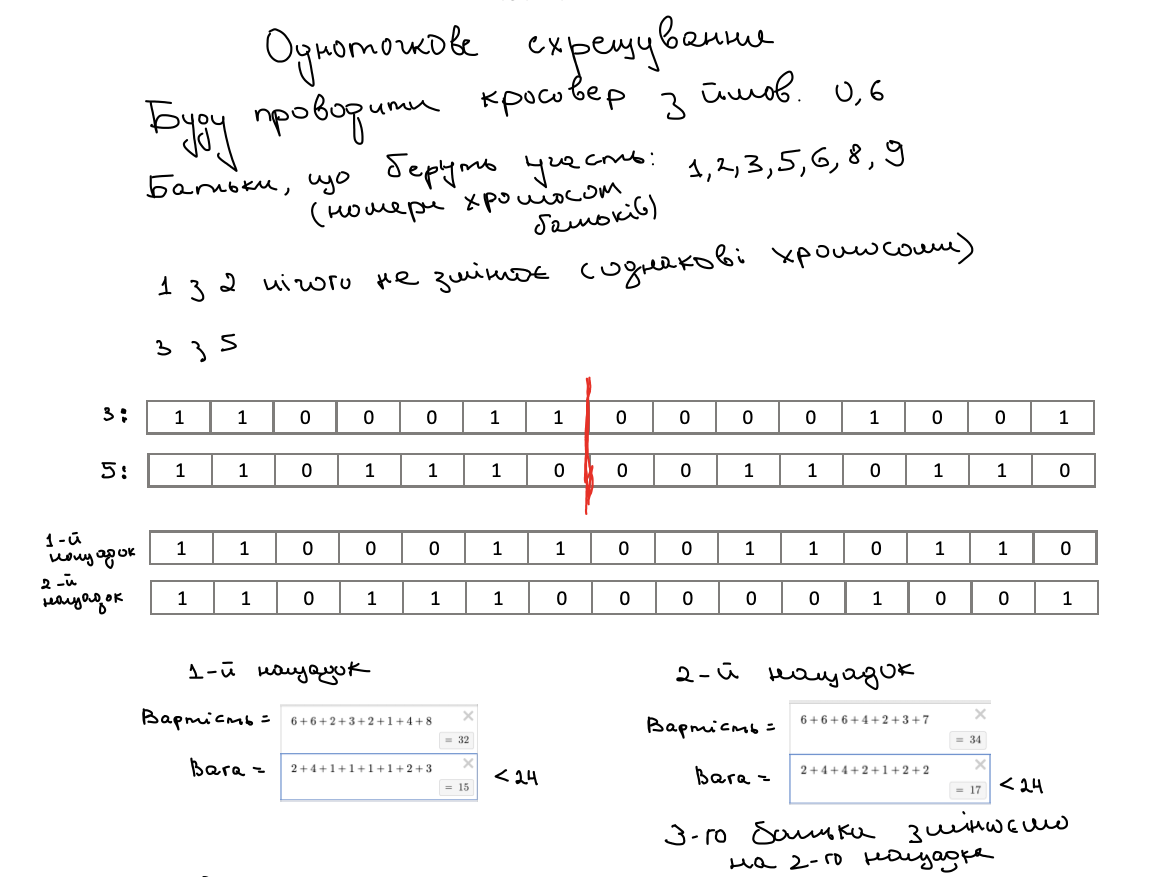 Одноточкове схрещування
Буду проводити кросовер з ймов. 0,6
Батьки, що беруть участь: 1,2,3,5,6,8,9
(номери хромосом
батьків)
1 з 2 нічого не змінює (однакові хромосоми)
3 з 5
3: 1 1 0 0 0 1 1 0 0 0 0 1 0 0 1
5: 1 1 0 1 1 1 0 0 0 1 1 0 1 1 0
1-й нащадок 1 1 0 0 0 1 1 0 0 1 1 0 1 1 0
2-й нащадок 1 1 0 1 1 1 0 0 0 0 0 1 0 0 1
1-й нащадок
Вартість = 6+6+2+3+2+1+4+8
= 32
Вага = 2+4+1+1+1+1+2+3
= 15 < 24
2-й нащадок
Вартість = 6+6+6+4+2+3+7
= 34
Вага = 2+4+4+2+1+2+2
= 17 < 24
3-го батька змінюємо
на 2-го нащадка